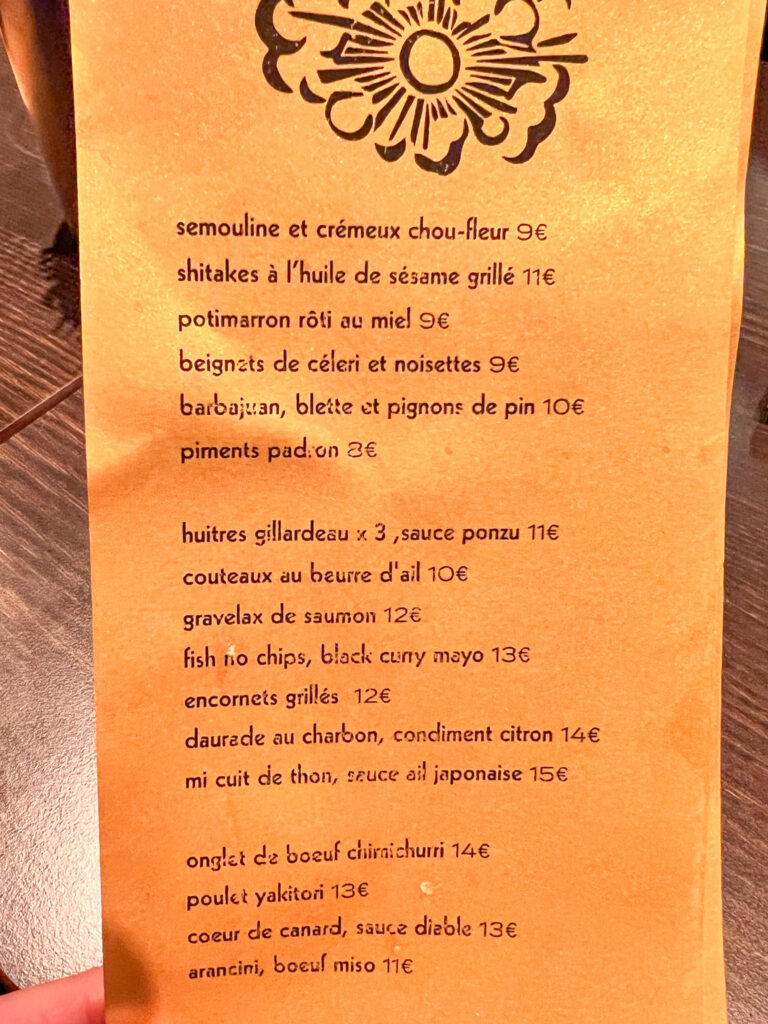 semouline et crémeux chou-fleur 9€
shitakes à l'huile de sésame grillé 11€
potimarron rôti au miel 9€
beignets de céleri et noisettes 9€
barbajuan, blette et pignons de pin 10€
piments padron 8€
huitres gillardeau x 3 ,sauce ponzu 11€
couteaux au beurre d'ail 10€
gravelax de saumon 12€
fish no chips, black curry mayo 13€
encornets grillés 12€
daurade au charbon, condiment citron 14€
mi cuit de thon, sauce ail japonaise 15€
onglet de boeuf chimichurri 14€
poulet yakitori 13€
coeur de canard, sauce diable 13€
arancini, boeuf miso 11€